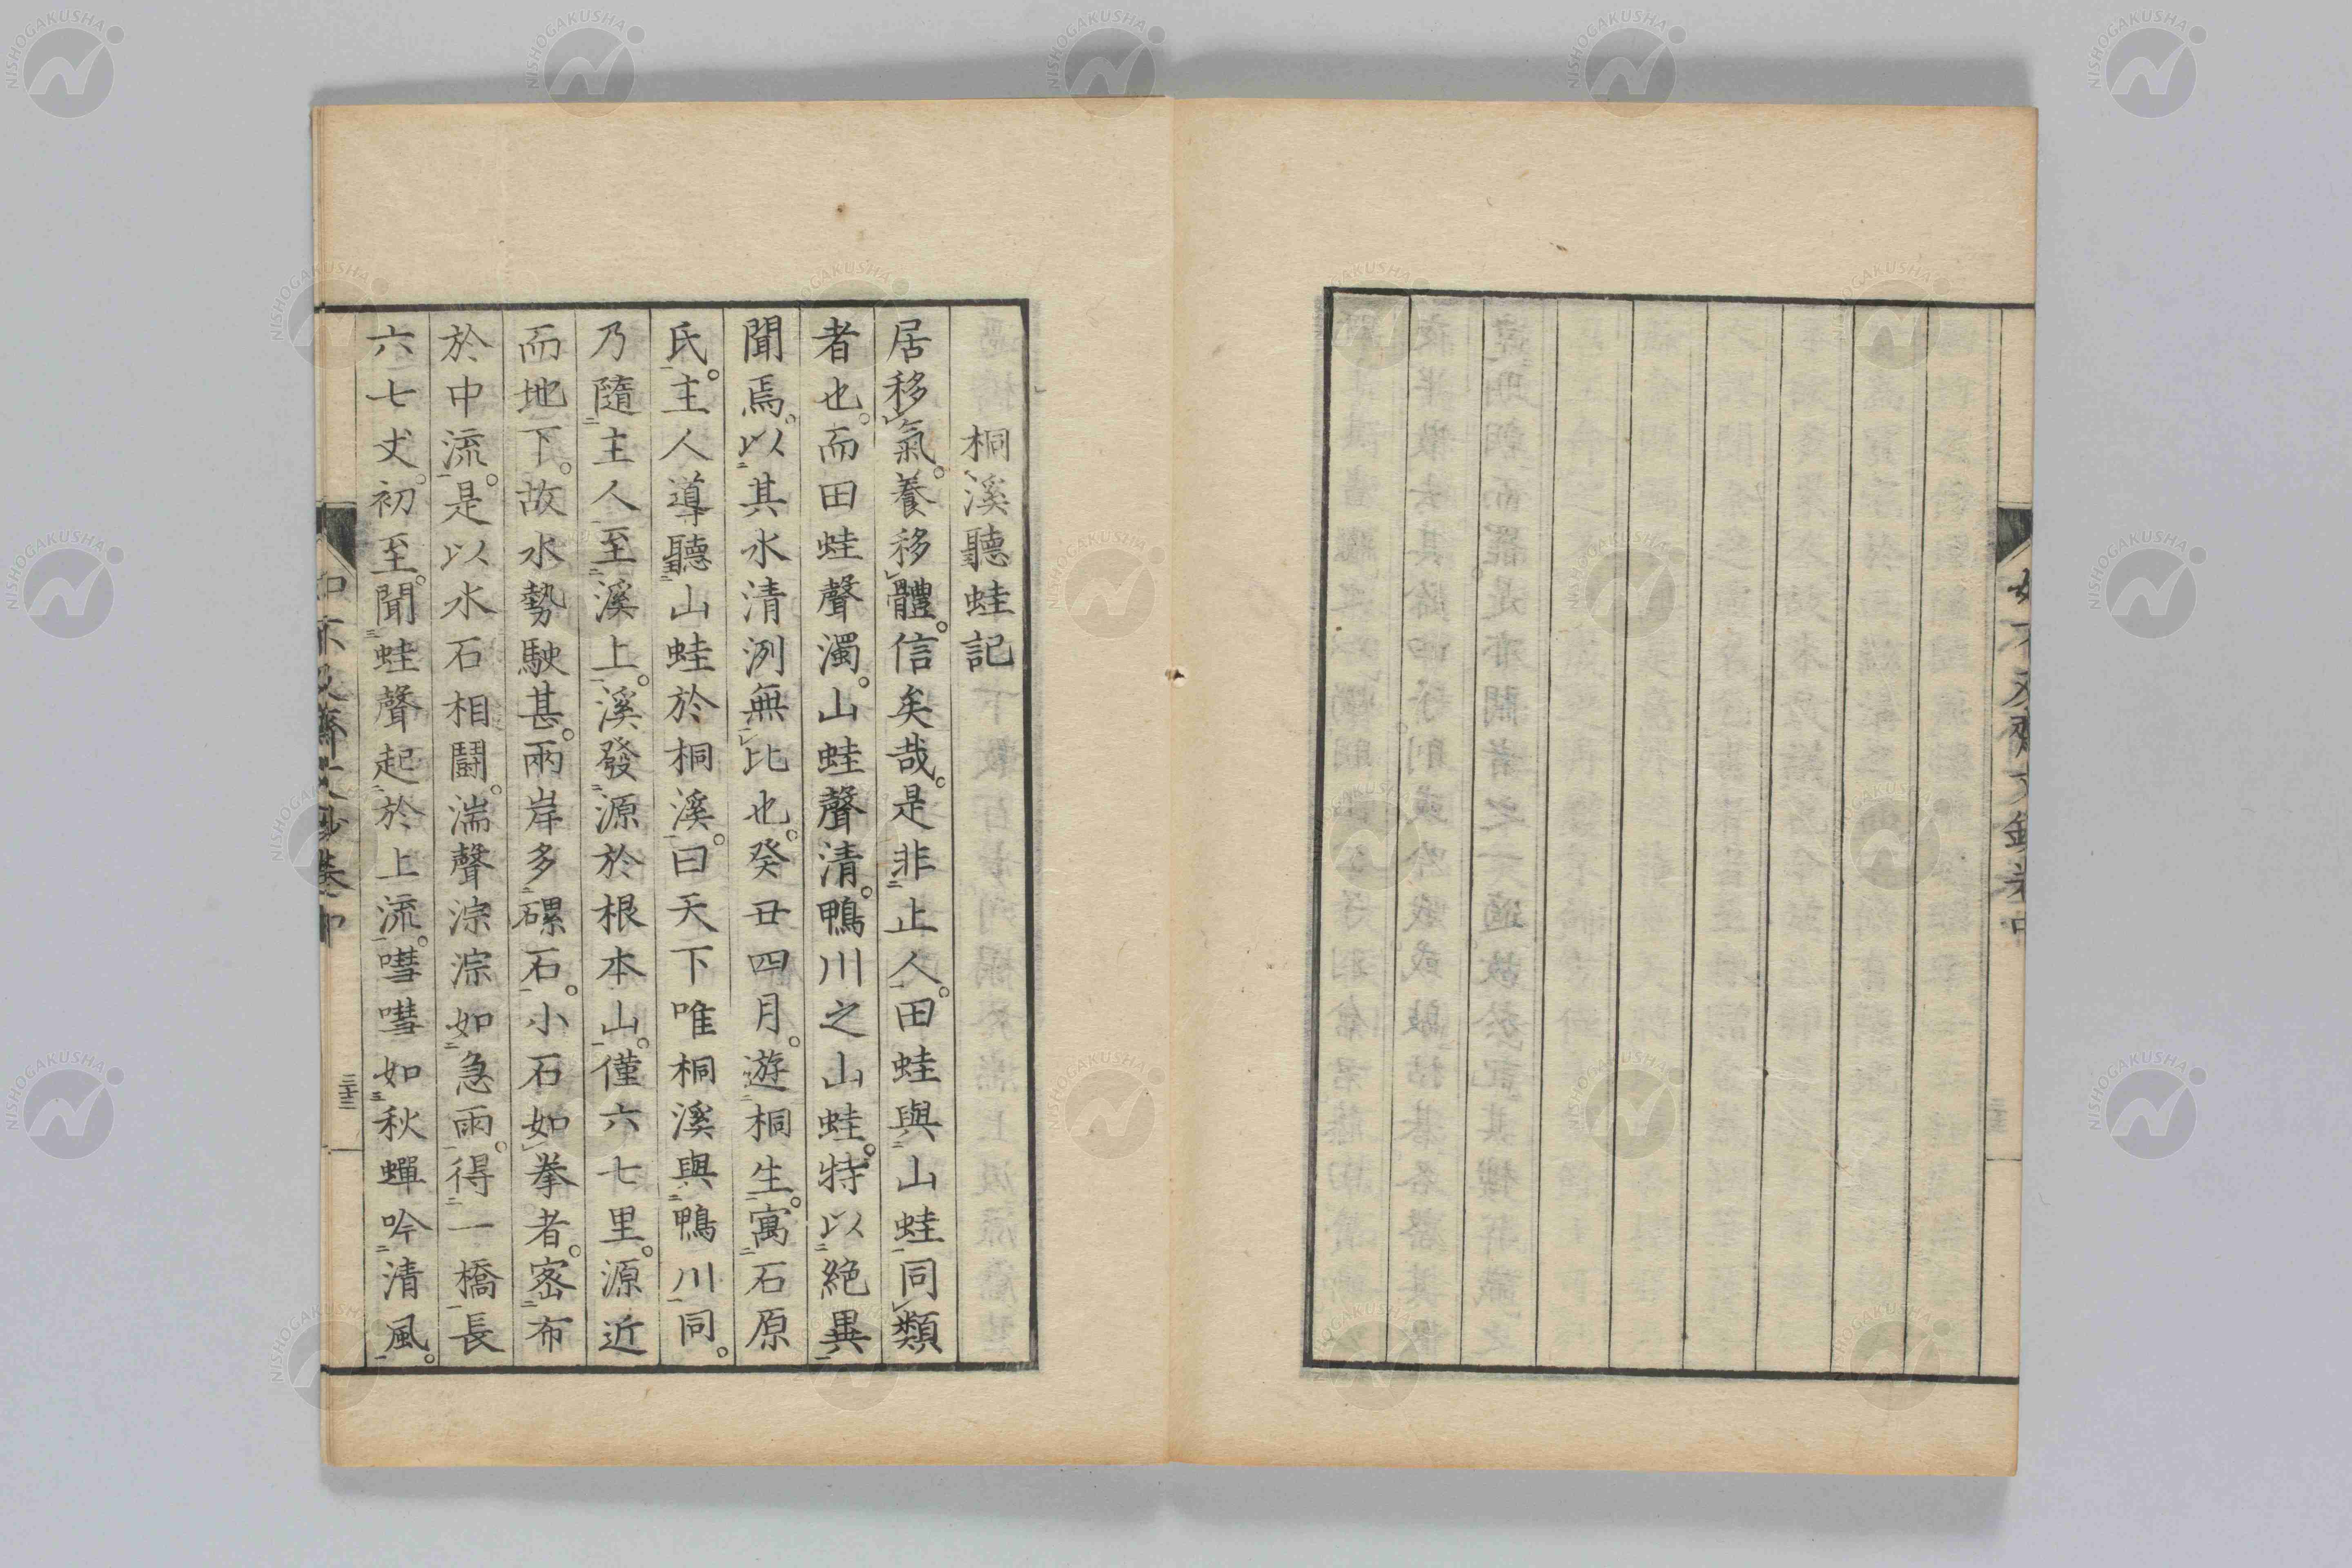 桐溪聽蛙記
居移氣。養移體。信矣哉。是非止人。田蛙與山蛙同類
者也。而田蛙聲濁。山蛙聲清。鴨川之山蛙。特以絕異
聞焉。以其水清洌無比也。癸丑四月。遊桐生。寓石原
氏。主人導聽山蛙於桐溪。曰天下唯桐溪與鴨川同。
乃隨主人至溪上。溪發源於根本山。僅六七里。源近
而地下。故水勢駛甚。兩岸多磥石。小石如拳者。密布
於中流。是以水石相鬪。湍聲淙淙如急雨。得一橋長
六七丈。初至。聞蛙聲起於上流。嘒嘒如秋蟬吟清風。
二十三
NISHOGAKUSHA